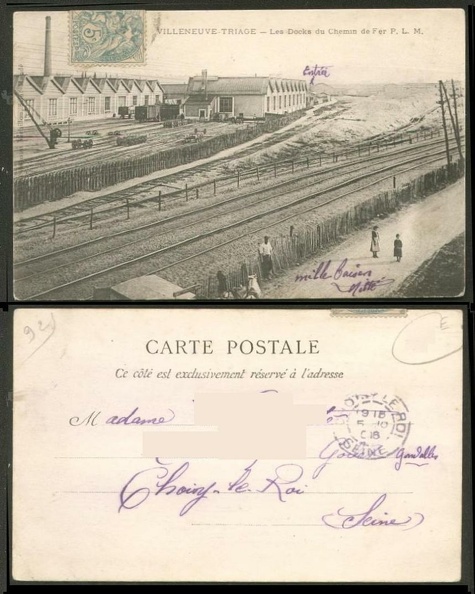 VILLENEUVE-TRIAGE — Les Docks du Chemin de Fer P. L. M.
5
Entrée
mille baisers
92
E
CARTE POSTALE
Ce côté est exclusivement réservé à l'adresse
Madame
CHOISY-LE-ROI
SEINE
Choisy-le-Roi
(Seine)